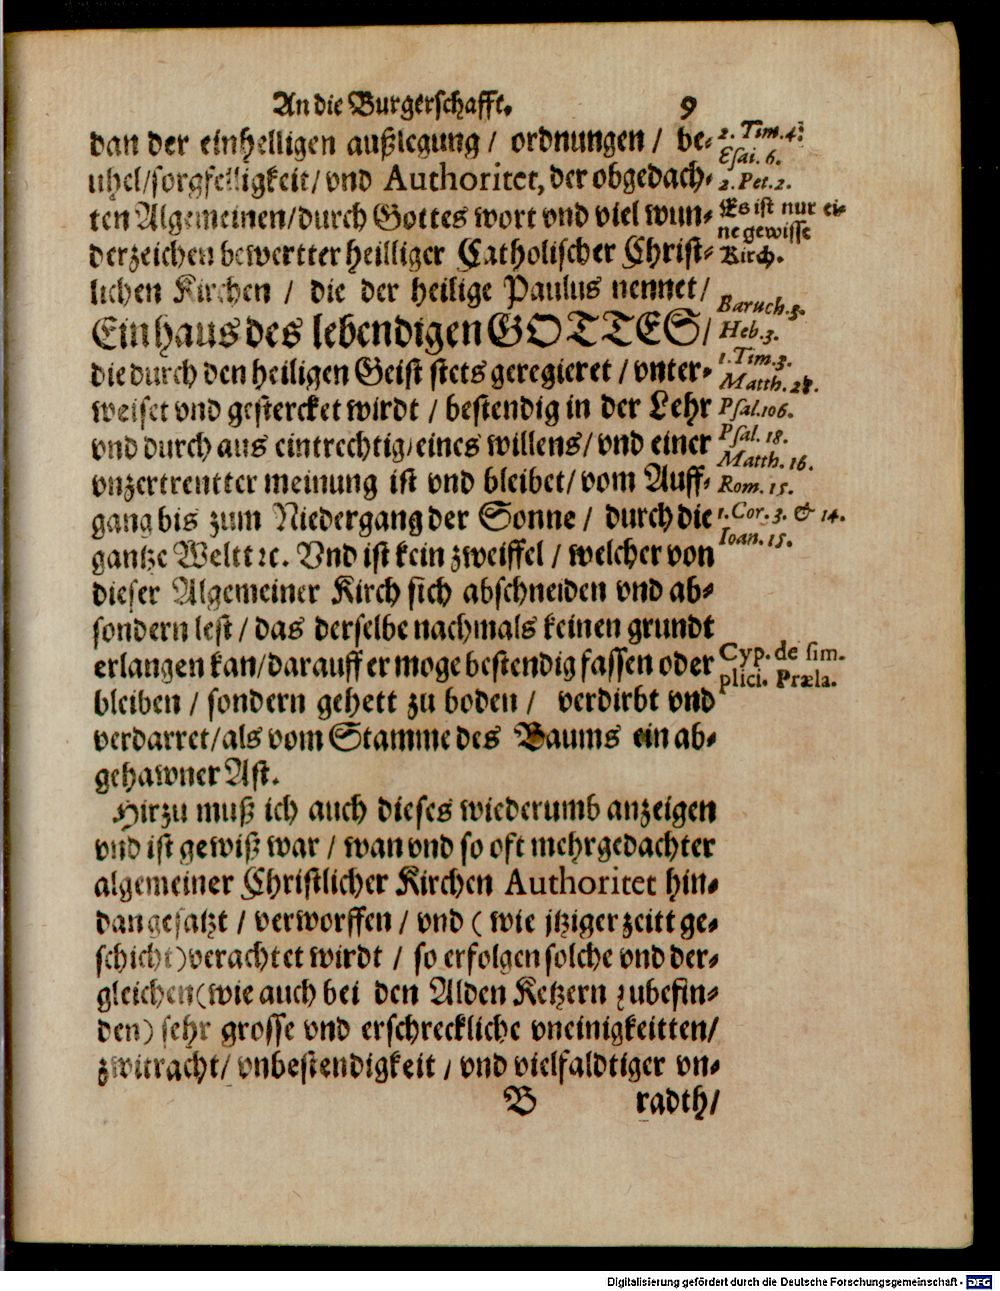 An die Burgerschafft. 9
dan der einhelligen außlegung / ordnungen / be-
uhel/sorgfelligkeit/vnd Authoritet, der obgedach-
ten Algemeinen/durch Gottes wort vnd viel wun-
derzeichen bewertter heilliger Catholischer Christ-
lichen Kirchen / die der heilige Paulus nennet/
Ein haus des lebendigen GOTTES/
die durch den heiligen Geist stets geregieret / vnter-
weiset vnd gestercket wirdt / bestendig in der Lehr
vnd durch aus eintrechtig/eines willens/vnd einer
vnzertrentter meinung ist vnd bleibet/vom Auff-
gang bis zum Niedergang der Sonne / durch die
gantze Weltt ꝛc. Vnd ist kein zweiffel / welcher von
dieser Algemeiner Kirch sich abschneiden vnd ab-
sondern lest / das derselbe nachmals keinen grundt
erlangen kan/darauff er moge bestendig fassen oder
bleiben / sondern gehett zu boden / verdirbt vnd
verdarret/als vom Stamme des Baums ein ab-
gehawner Ast.
Hirzu muß ich auch dieses wiederumb anzeigen
vnd ist gewiß war / wan vnd so oft mehrgedachter
algemeiner Christlicher Kirchen Authoritet hin-
dangesatzt / verworffen / vnd ( wie jtziger zeitt ge-
schicht)verachtet wirdt / so erfolgen solche vnd der-
gleichen(wie auch bei den Alden Ketzern zubefin-
den) sehr grosse vnd erschreckliche vneinigkeitten/
zwitracht/ vnbestendigkeit / vnd vielfaldtiger vn-
B radth/
2. Tim. 4.
Esai. 6.
2. Pet. 2.
Es ist nur ei-
ne gewisse
Kirch.
Baruch. 3.
Heb. 3.
1. Tim. 3.
Matth. 28.
Psal. 106.
Psal. 18.
Matth. 16.
Rom. 15.
1. Cor. 3. & 14.
Ioan. 15.
Cyp. de sim.
plici. Præla.
Digitalisierung gefördert durch die Deutsche Forschungsgemeinschaft - DFG